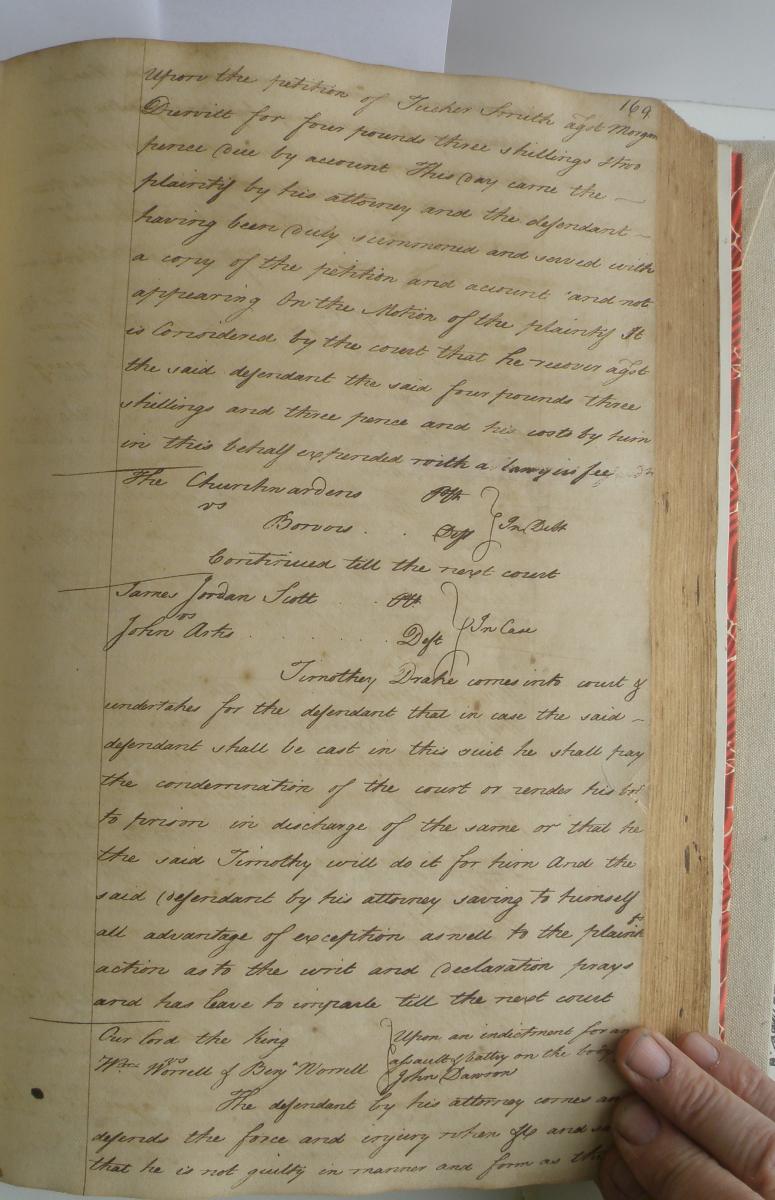 169
Upon the petition of Tucker Smith agst Morgan
for four pounds three shillings & two
pence due by account This Day came the —
plaintif by his attorney and the defendant —
having been Duly summoned and served with
a copy of the petition and account and not
appearing On the Motion of the plaintif It
is Considered by the court that he recover agst
the said defendant the said four pounds three
shillings and three pence and his costs by him
in this behalf expended with a lawyers fee
The Churchwardens Plt
vs In Debt
Deft
Continued till the next court
James Jordan Scott Plt
vs In Case
John Deft
Timothy Drake comes into court &
undertakes for the defendant that in case the said —
defendant shall be cast in this suit he shall pay
the condemnation of the court or render his
to prison in discharge of the same or that he
the said Timothy will do it for him And the
said Defendant by his attorney saving to himself
all advantage of exception aswell to the plaint
action as to the writ and Declaration prays
and has leave to imparle till the next court
Our Lord the King Upon an indictment for an
vs assault & batty on the body
Wm Worrell & Benja Worrell John Dawson
The defendant by his attorney comes
defends the force and injury when &c and
that he is not guilty in manner and form as